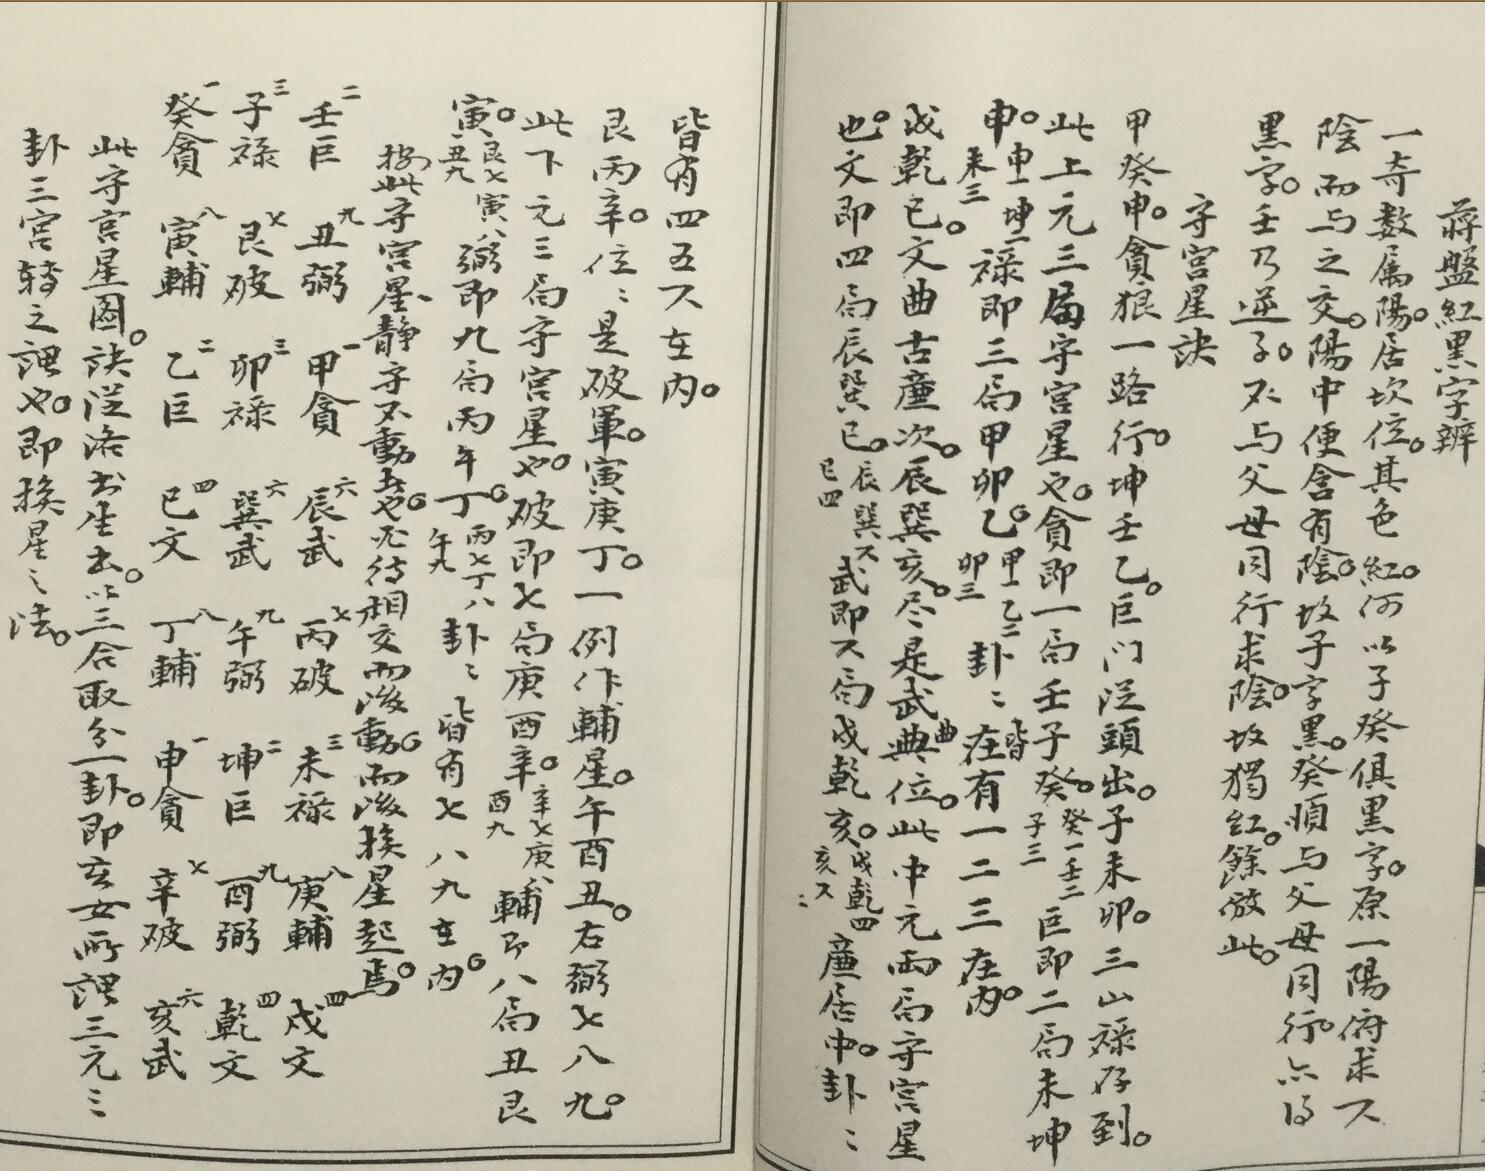 蔣盤紅黑字辨
一奇数属陽。居坎位。其色紅。何以子癸俱黑字。原一陽俯求六
陰而与之交。陽中便含有陰。故子字黑。癸順与父母同行。亦得
黑字。壬乃逆子。不与父母同行求陰。故獨紅。餘倣此。
守宮星訣
甲癸申。貪狼一路行。坤壬乙。巨门從頭出。子未卯。三山祿存到。
此上元三局守宮星也。貪即一局壬子癸。癸一壬二子三巨即二局未坤
申。申一坤二未三祿即三局甲卯乙。甲一乙二卯三卦〻皆在有一二三在内。
戌乾巳。文曲古廉次。辰巽亥。尽是武典曲位。此中元兩局守宮星
也。文即四局辰巽巳。辰巽六巳四武即六局戌乾亥。戌乾四亥六廉居中。卦〻
皆有四五六在内。
艮丙辛。位〻是破軍。寅庚丁。一例作輔星。午酉丑。右弼七八九。
此下元三局守宮星也。破即七局庚酉辛。辛七庚八酉九輔即八局丑艮
寅。艮七寅八丑九弼即九局丙午丁。丙七丁八午九卦〻皆有七八九在内。
按此守宮星、静守不動者也。必待相交而後動。而後挨星起焉。
壬巨二 丑弼九 甲貪一 辰武六 丙破七 未祿三 庚輔八 戌文四
子祿三 艮破七 卯祿三 巽武六 午弼九 坤巨二 酉弼九 乾文四
癸貪一 寅輔八 乙巨二 巳文四 丁輔八 申貪一 辛破七 亥武六
此守宮星圖。訣從洛书生出。以三合取分一卦。即玄女所謂三元三
卦三宮轉之謂也。即挨星之法。